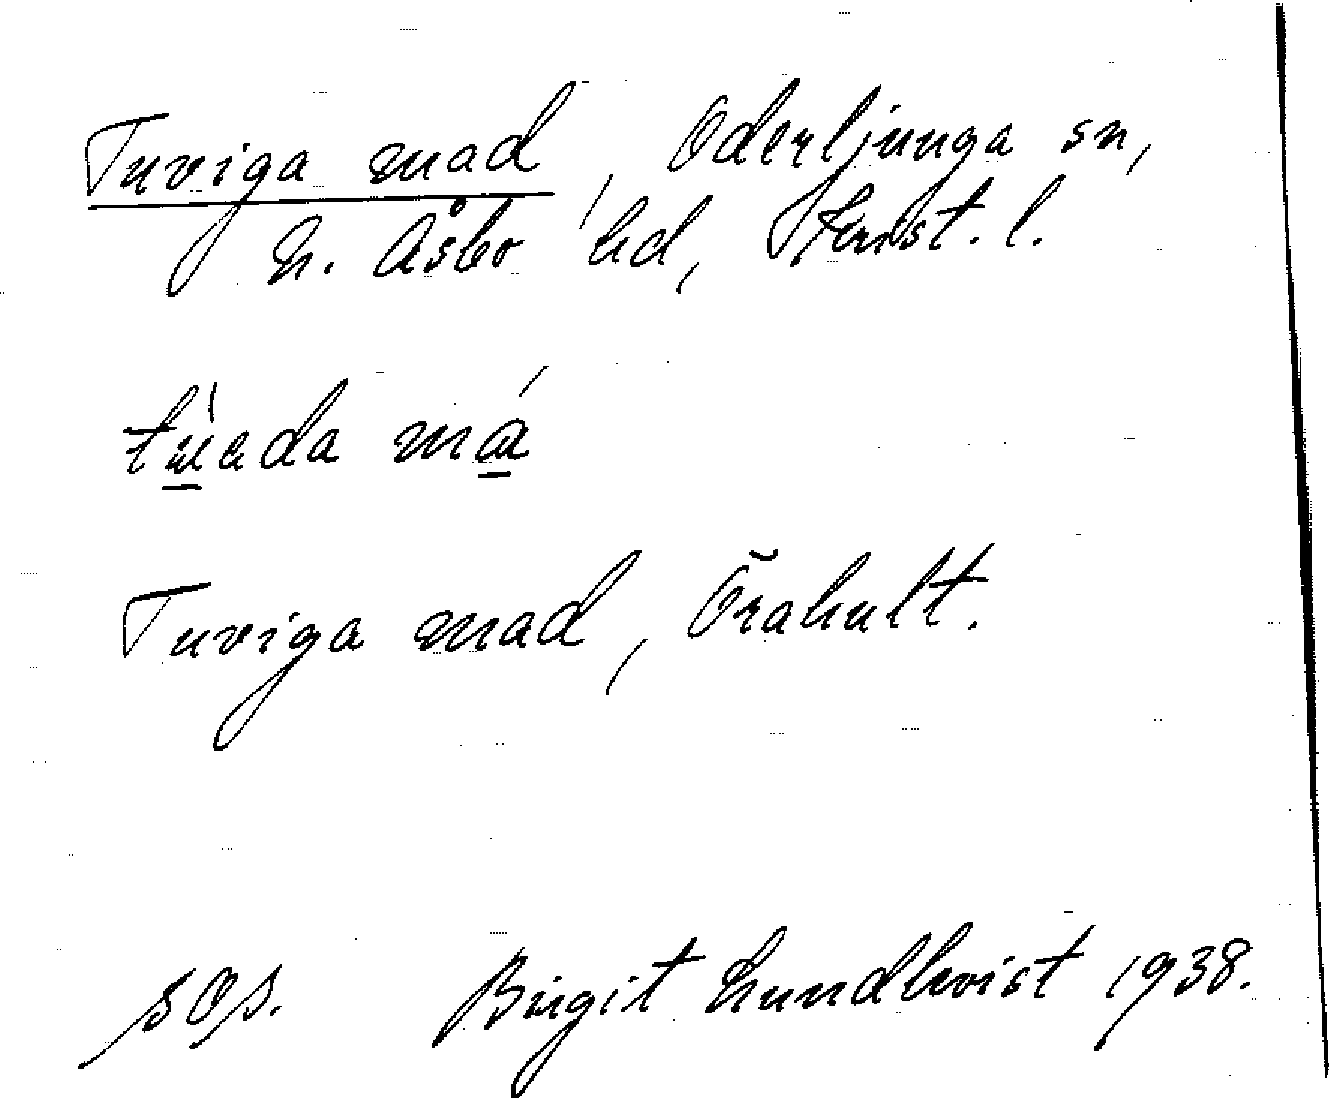 Tuviga mad, Oderljunga sn,
N. Åsbo hd, Krist. l.
Tuviga mad, Örahult.
sOs. Birgit Lundkvist 1938.